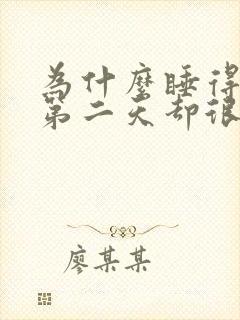 為什麼睡得
第二天卻很
廖某某